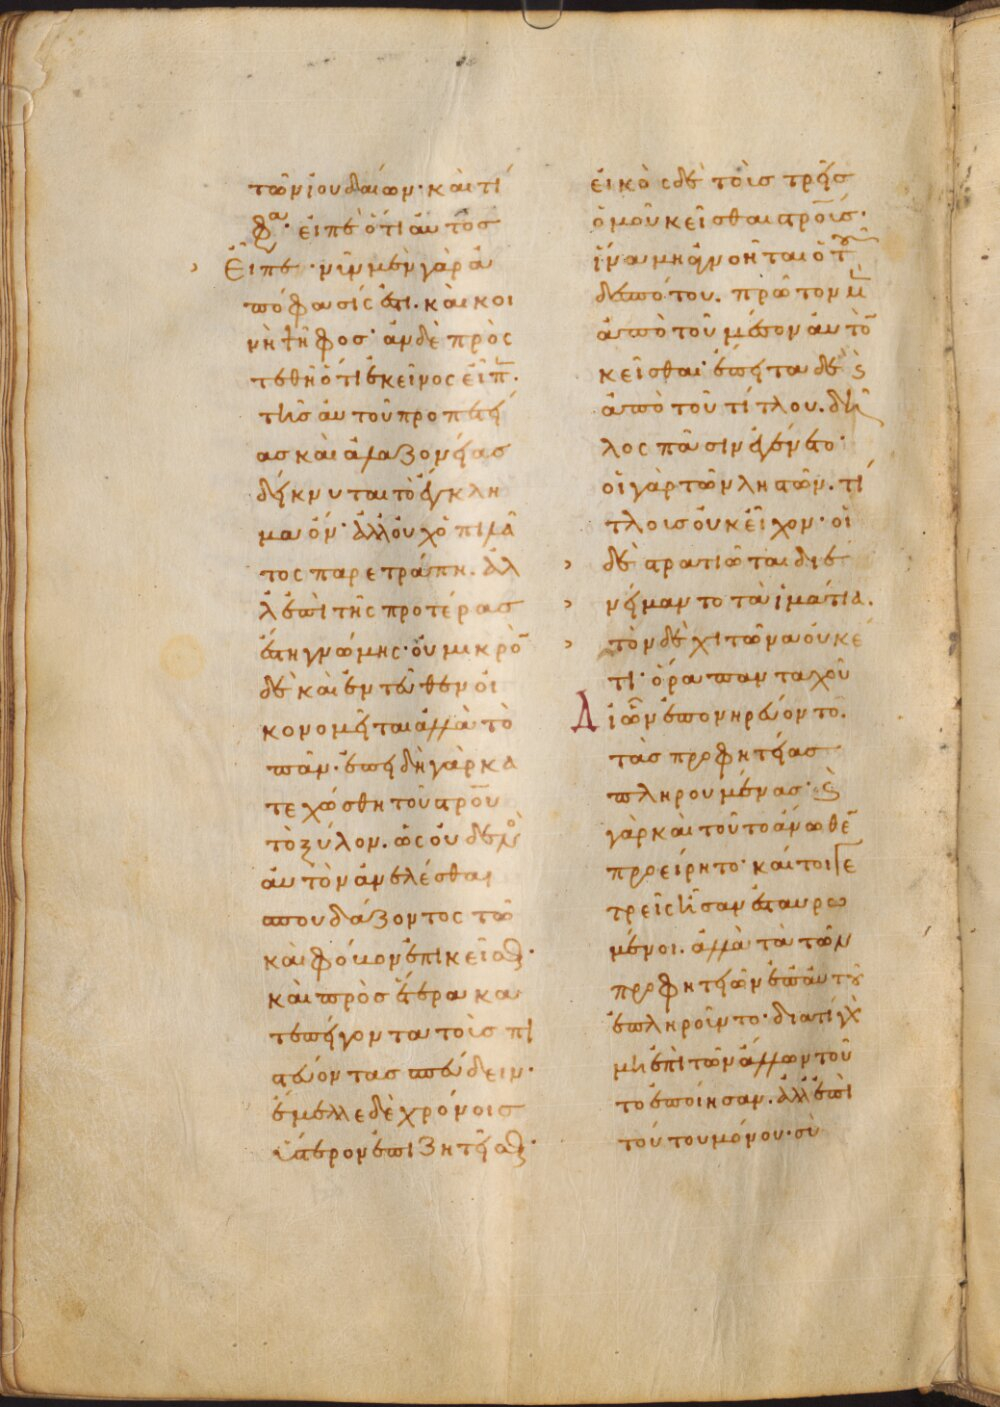 τῶν ἰουδαίων· καὶ τί
φα(σιν)· εἰπὲ ὅτι αὐτὸς
εἶπε· νῦν μὲν γὰρ ἀ
πόφασίς ἐστι. καὶ κοι
νὴ ψῆφος· ἂν δὲ προς
τεθῆ ὅτι ἐκεῖνος εἶπ(εν).
τῆς αὐτοῦ προπετεί
ας καὶ ἀλαζονείας
δείκνυται τὸ ἔγκλη
μα ὄν· ἀλλ' οὐχ ὁ πιλᾶ
τος παρετράπη. ἀλ
λ' ἐπὶ τῆς προτέρας
ἔστη γνώμης· οὐ μικρὸ(ν)
δὲ καὶ ἐντεῦθεν οἰ
κονομεῖται ἀλλὰ τὸ
πᾶν· ἐπειδὴ γὰρ κα
τεχώσθη τοῦ στρου
τὸ ξύλον. ὡς οὐδενὸς
αὐτὸν ἀνελέσθαι
σπουδάζοντος τῶ
καὶ φόβον ἐπικεῖσθαι·
καὶ πρὸς ἕτερα κα
τεπείγοντα τοὺς πι
στεύοντας σπεύδειν·
ἔμελλε δὲ χρόνοις
ὕστερον ἐπιζητεῖσθαι·
εἰκὸς δὲ τοὺς τρεῖς
ὁμοῦ κεῖσθαι στροὺς·
ἵνα μὴ ἀγνοῆται ὁ τοῦ
δεσπότου. πρῶτον μ(ὲν)
ἀπὸ τοῦ μέσον αὐτὸ(ν)
κεῖσθαι· ἔπειτα δὲ καὶ
ἀπὸ τοῦ τίτλου. δῆ
λος πᾶσιν ἐγένετο·
οἱ γὰρ τῶν ληστῶν. τί
τλους οὐκ εἶχον· οἱ
δὲ στρατιῶται διε
νείμαντο τὰ ἱμάτια.
τὸν δὲ χιτῶνα οὐκέ
τι· ὅρα πανταχοῦ
Δι' ὧν ἐπονηρεύοντο.
τὰς προφητείας
πληρουμένας· καὶ
γὰρ καὶ τοῦτο ἄνωθε(ν)
προείρητο· καίτοιγε
τρεῖς ἦσαν ἐσταυρω
μένοι. ἀλλὰ τὰ τῶν
προφητειῶν ἐπ' αὐτοῦ
ἐπληροῦντο· διατί γὰρ
μὴ ἐπὶ τῶν ἄλλων τοῦ
το ἐποίησαν. ἀλλ' ἐπὶ
τούτου μόνου· σὺ